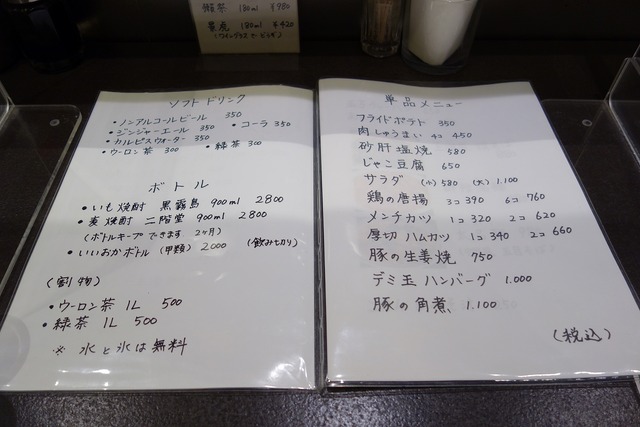 180ml ¥980
180ml ¥420
ソフトドリンク
・ノンアルコールビール 350
・ジンジャーエール 350 ・コーラ 350
・カルピスウォーター 350
・ウーロン茶 300 ・緑茶 300
ボトル
・いも焼酎 黒霧島 900ml 2800
・麦焼酎 二階堂 900ml 2800
(ボトルキープできます 2ヶ月)
・いいおかボトル (甲類) 2000 (飲み切り)
(割物)
・ウーロン茶 1L 500
・緑茶 1L 500
※ 水と氷は無料
単品メニュー
フライドポテト 350
肉しゅうまい 4コ 450
砂肝塩焼 580
じゃこ豆腐 650
サラダ (小)580 (大)1.100
鶏の唐揚 3コ 390 6コ 760
メンチカツ 1コ 320 2コ 620
厚切ハムカツ 1コ 340 2コ 660
豚の生姜焼 750
デミ玉ハンバーグ 1.000
豚の角煮 1.100
(税込)